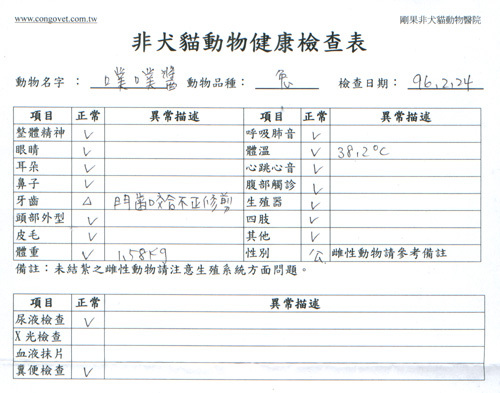 www.congovet.com.tw 剛果非犬貓動物醫院
非犬貓動物健康檢查表
動物名字： 噗噗醬 動物品種： 兔 檢查日期： 96.2.24
項目 正常 異常描述 項目 正常 異常描述
整體精神 ✓ 呼吸肺音 ✓
眼睛 ✓ 體溫 ✓ 38.2°C
耳朵 ✓ 心跳心音 ✓
鼻子 ✓ 腹部觸診 ✓
牙齒 △ 門齒咬合不正修剪 生殖器 ✓
頭部外型 ✓ 四肢 ✓
皮毛 ✓ 其他 ✓
體重 ✓ 1.58Kg 性別 公 雌性動物請參考備註
備註：未結紮之雌性動物請注意生殖系統方面問題。
項目 正常 異常描述
尿液檢查 ✓
X光檢查
血液抹片
糞便檢查 ✓